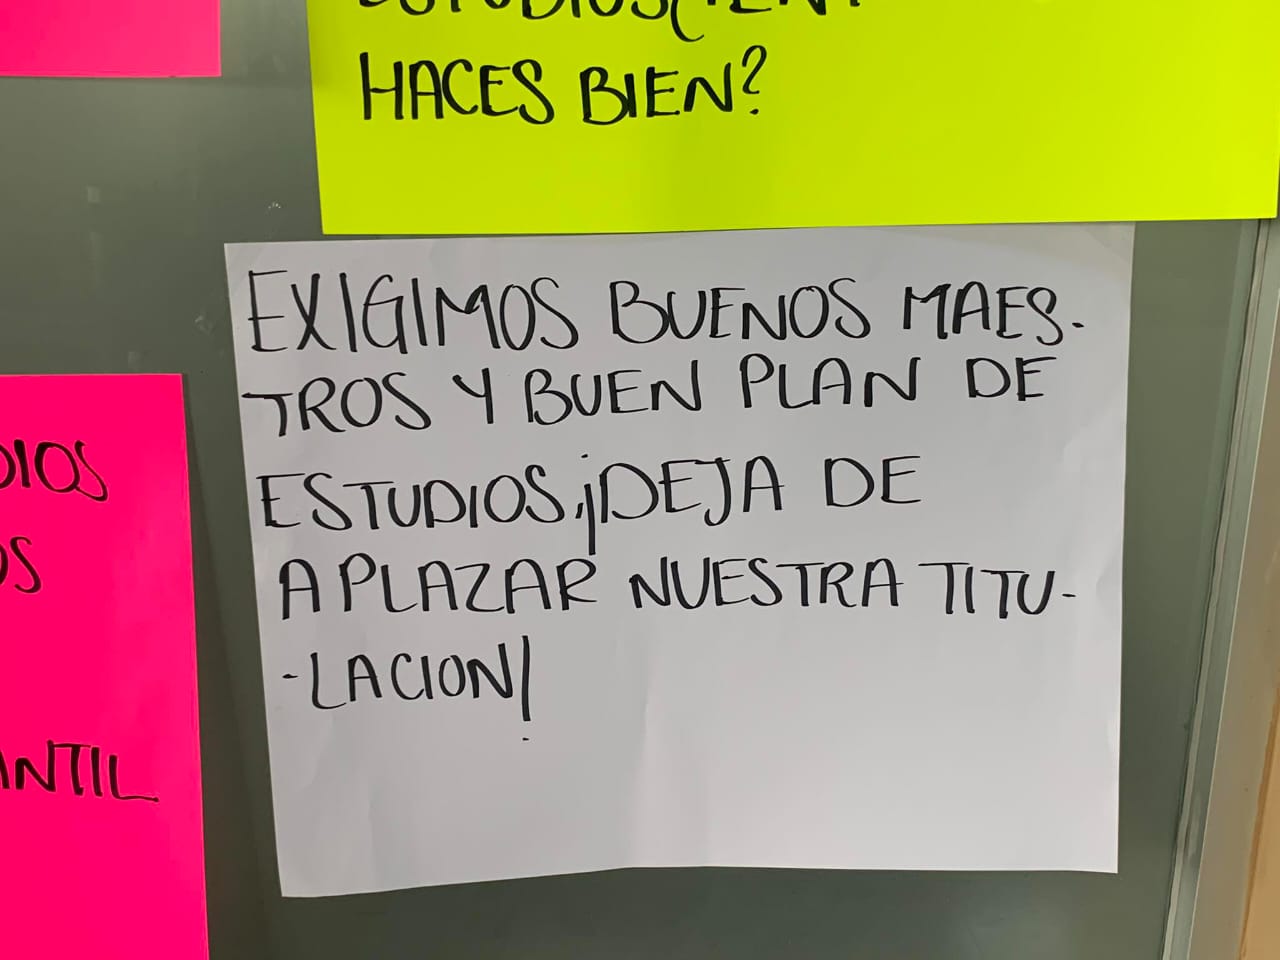 HACES BIEN?
EXIGIMOS BUENOS MAES-
TROS Y BUEN PLAN DE
ESTUDIOS,¡DEJA DE
APLAZAR NUESTRA TITU-
-LACION!
DIOS
OS
ANTIL